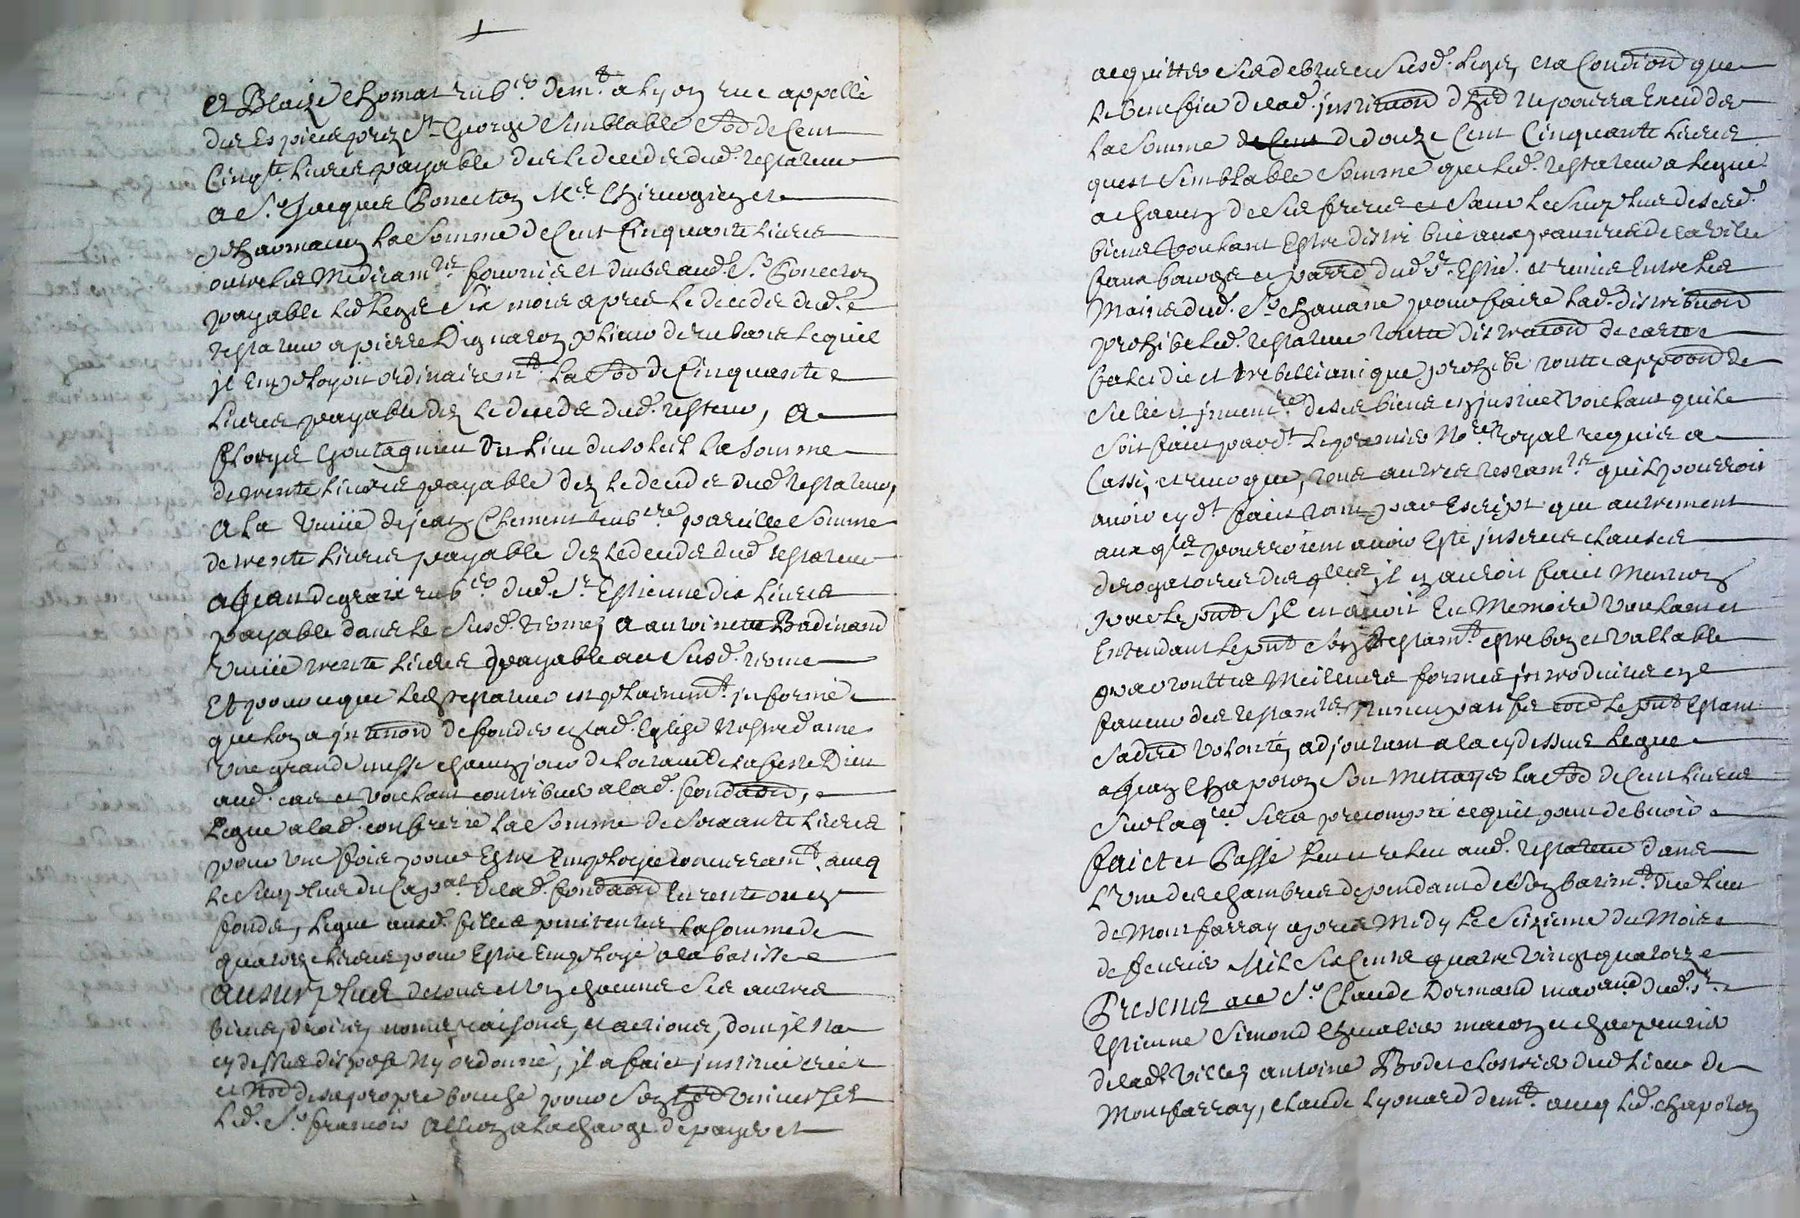 et Blaize thomas rub.er dem.t a Lyon rue appellé
des Espicies prez St George semblable so͞e de Cent
Cinq.te Livres payable des le deceds dud. testateur
a S.r Jacques Ponceton M.e Chirurgien a
St Chaumaux la somme de Cent Cinquante Livres
outre les Medicam.ts fournis et deubs aud. S.r Ponceton
payable led. legs six mois apres le deceds dud.
testateur a pierre Dignaron p lieur de rubans lequel
il Employoit ordinairem.t la so͞e de Cinquante
Livres payable dez le deceds dud. testeur, a
du lieu du soleil la somme
de trente Livres payable dez le deceds dud. testateur,
a la veufve de jean Clement rub.ere pareille somme
de trente Livres payable dez le deceds dud. testateur
a Jean degraix rub.er dud. St Estienne dix Livres
payable dans le susd. terme, a antoinette Badinand
veufve trente Livres payable au susd. terme
Et pource que led. testateur est plainem.t informé
que lon a intention de fonder en lad. Eglise Nostredame
une grande messe chacun jour de loctave de la feste Dieu
aud. cas et voulant contribuer a lad. fondaon,
Legue a lad. confrerie la somme de soixante Livres
pour une fois pour Estre Employée conjoinctem.t avecq
le surplus du Cap.al de lad. fondaon En rente ou en
fonds, Legue ausd. filles penitentes la somme de
quatorze Livres pour Estre Employé a la batisse
au surplus de tous et un chacuns ses autres
biens, droits, noms, raisons, et actions, dont il na
cy dessus disposé Ny ordonné, il a faict institué créé
et Nommé de sa propre bouche pour son hed universel
led. S.r francois Allion a la charge de payer et
acquitter ses debtes et susd. legs, et a Condition que
le benefice de lad. instituaon d'hed ne pourra Exceder
la somme de Cent de douze Cent Cinquante Livres
quest semblable somme que led. testateur a Legué
a chacun de ses freres et sœur le surplus de sesd.
biens voulant Estre distribué aux pauvres de la ville
faux bourgs et par͞re dud. St Estie. et remis Entre les
Mains dud. S.r Chavane pour faire lad. distribuon
prohibe led. testateur toutte distraction de carte
falcidie et trebellianique prohibe toutte appoon de
scellé et invent.re de ses biens en justice voulant quil
soit faict par dt le premier No.re Royal requis a
Cassé, et revoqué, tous autres testam.ts quil pourroit
avoir cy dt faict tant par Escript que autrement
aux q.ls pourroient avoir Esté inserés clauses
derogatoires des q.lles il en auroit faict Mention
par le p͞nt sil en avoit En Memoire voulant et
Entendant le p͞nt son testam.t estre bon et Vallable
par touttes Meilleures formes introduites en
faveur des testam.ts Nuncupatifs co͞e le p͞nt Estant
sa dre Volonté, adjoutant a la cy dessus legue
a Jean Chaporon son Mettayer la so͞e de Cent Livres
sur laq.lle sera precompté ce quil peut debvoir
faict et Passé Leu et releu aud. testateur dans
l'une des chambres dependant de son batim.t dud. lieu
de Montferray apres Midy le seizieme du Mois
de febvrier Mil six Cents quatre vingt quatorze
Presents ace S.r Claude Dormand marand dud. St
Estienne Simond Chevalier macon et charpentier
de lad. ville, antoine Bodet clostrier dud. lieu de
Montferray, claude Lyonard dem.t avecq led. chaporon